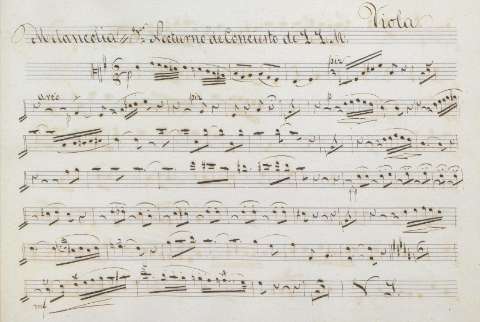 Viola
Melancolia = 3er Nocturno de Concierto de J. J. M.
piz
arco
piz
p
mf